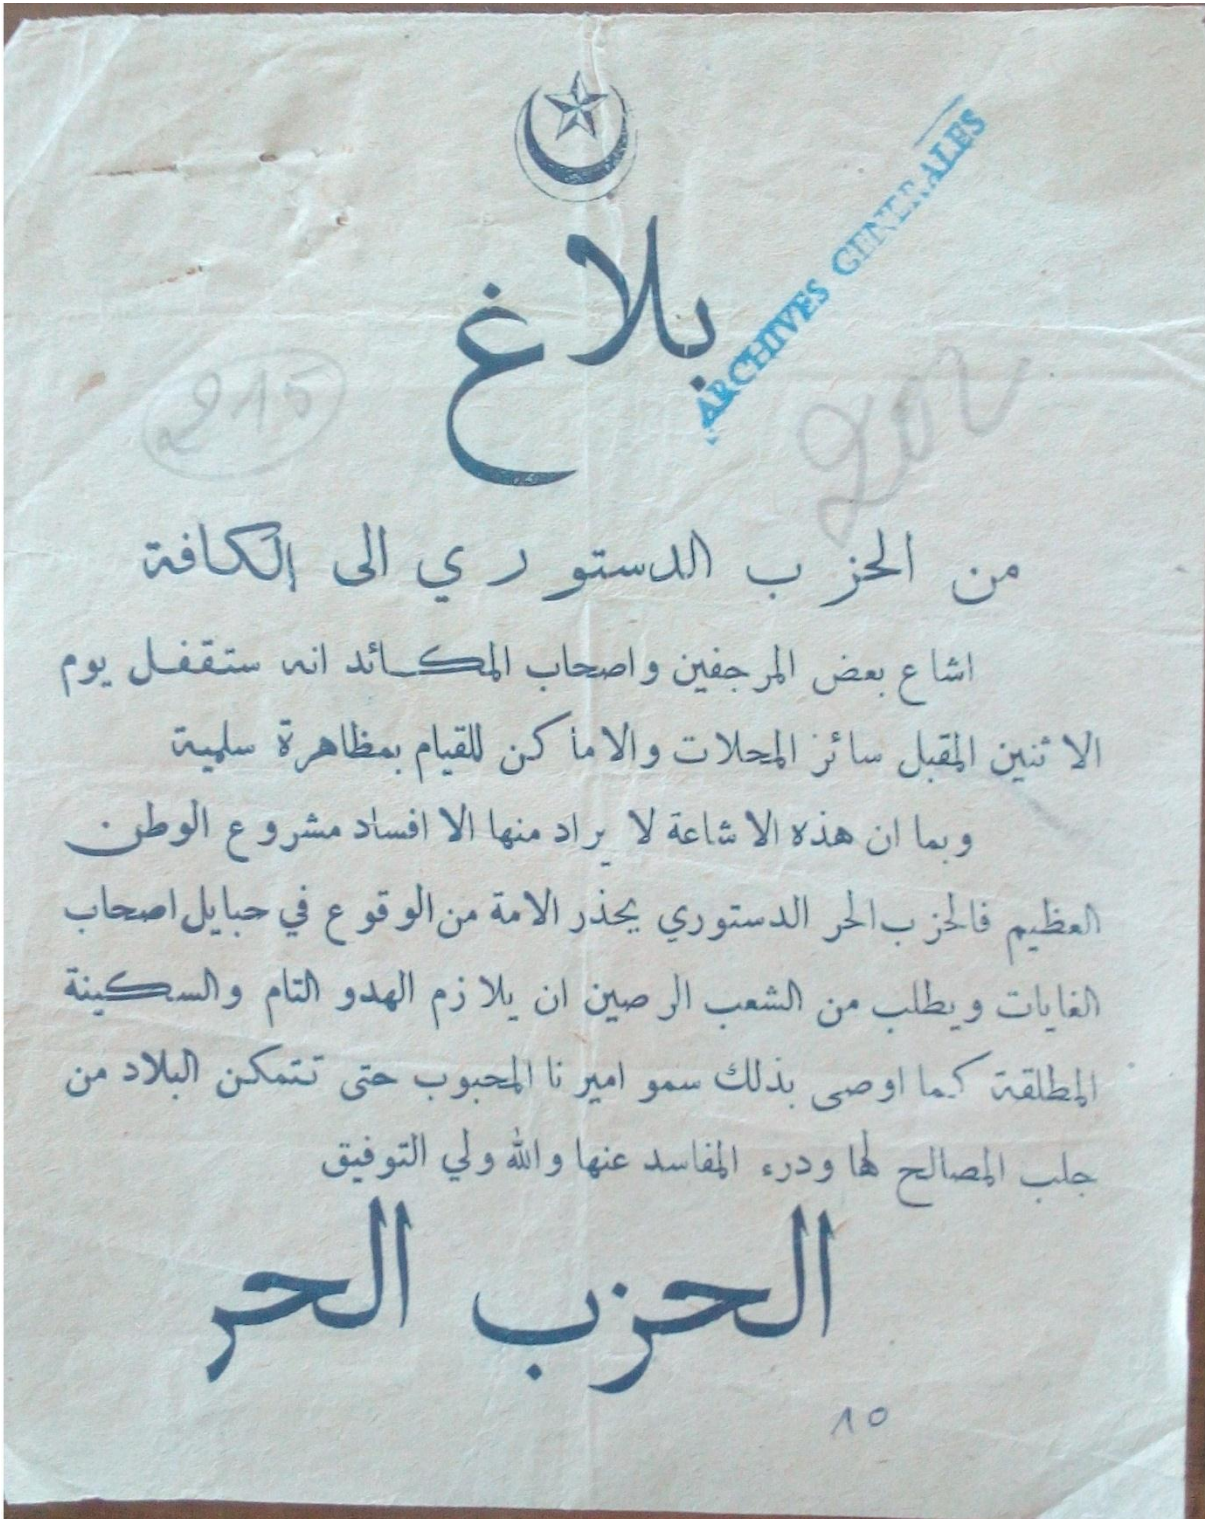 بلاغ
ARCHIVES GENERALES
215
202
من الحزب الدستوري الى الكافة
اشاع بعض المرجفين واصحاب المكائد انه ستقفل يوم
الاثنين المقبل سائر المحلات والاماكن للقيام بمظاهرة سلمية
وبما ان هذه الاشاعة لا يراد منها الا افساد مشروع الوطن
العظيم فالحزب الحر الدستوري يحذر الامة من الوقوع في حبايل اصحاب
الغايات ويطلب من الشعب الرصين ان يلازم الهدو التام والسكينة
المطلقة كما اوصى بذلك سمو اميرنا المحبوب حتى تتمكن البلاد من
جلب المصالح لها ودرء المفاسد عنها والله ولي التوفيق
الحزب الحر